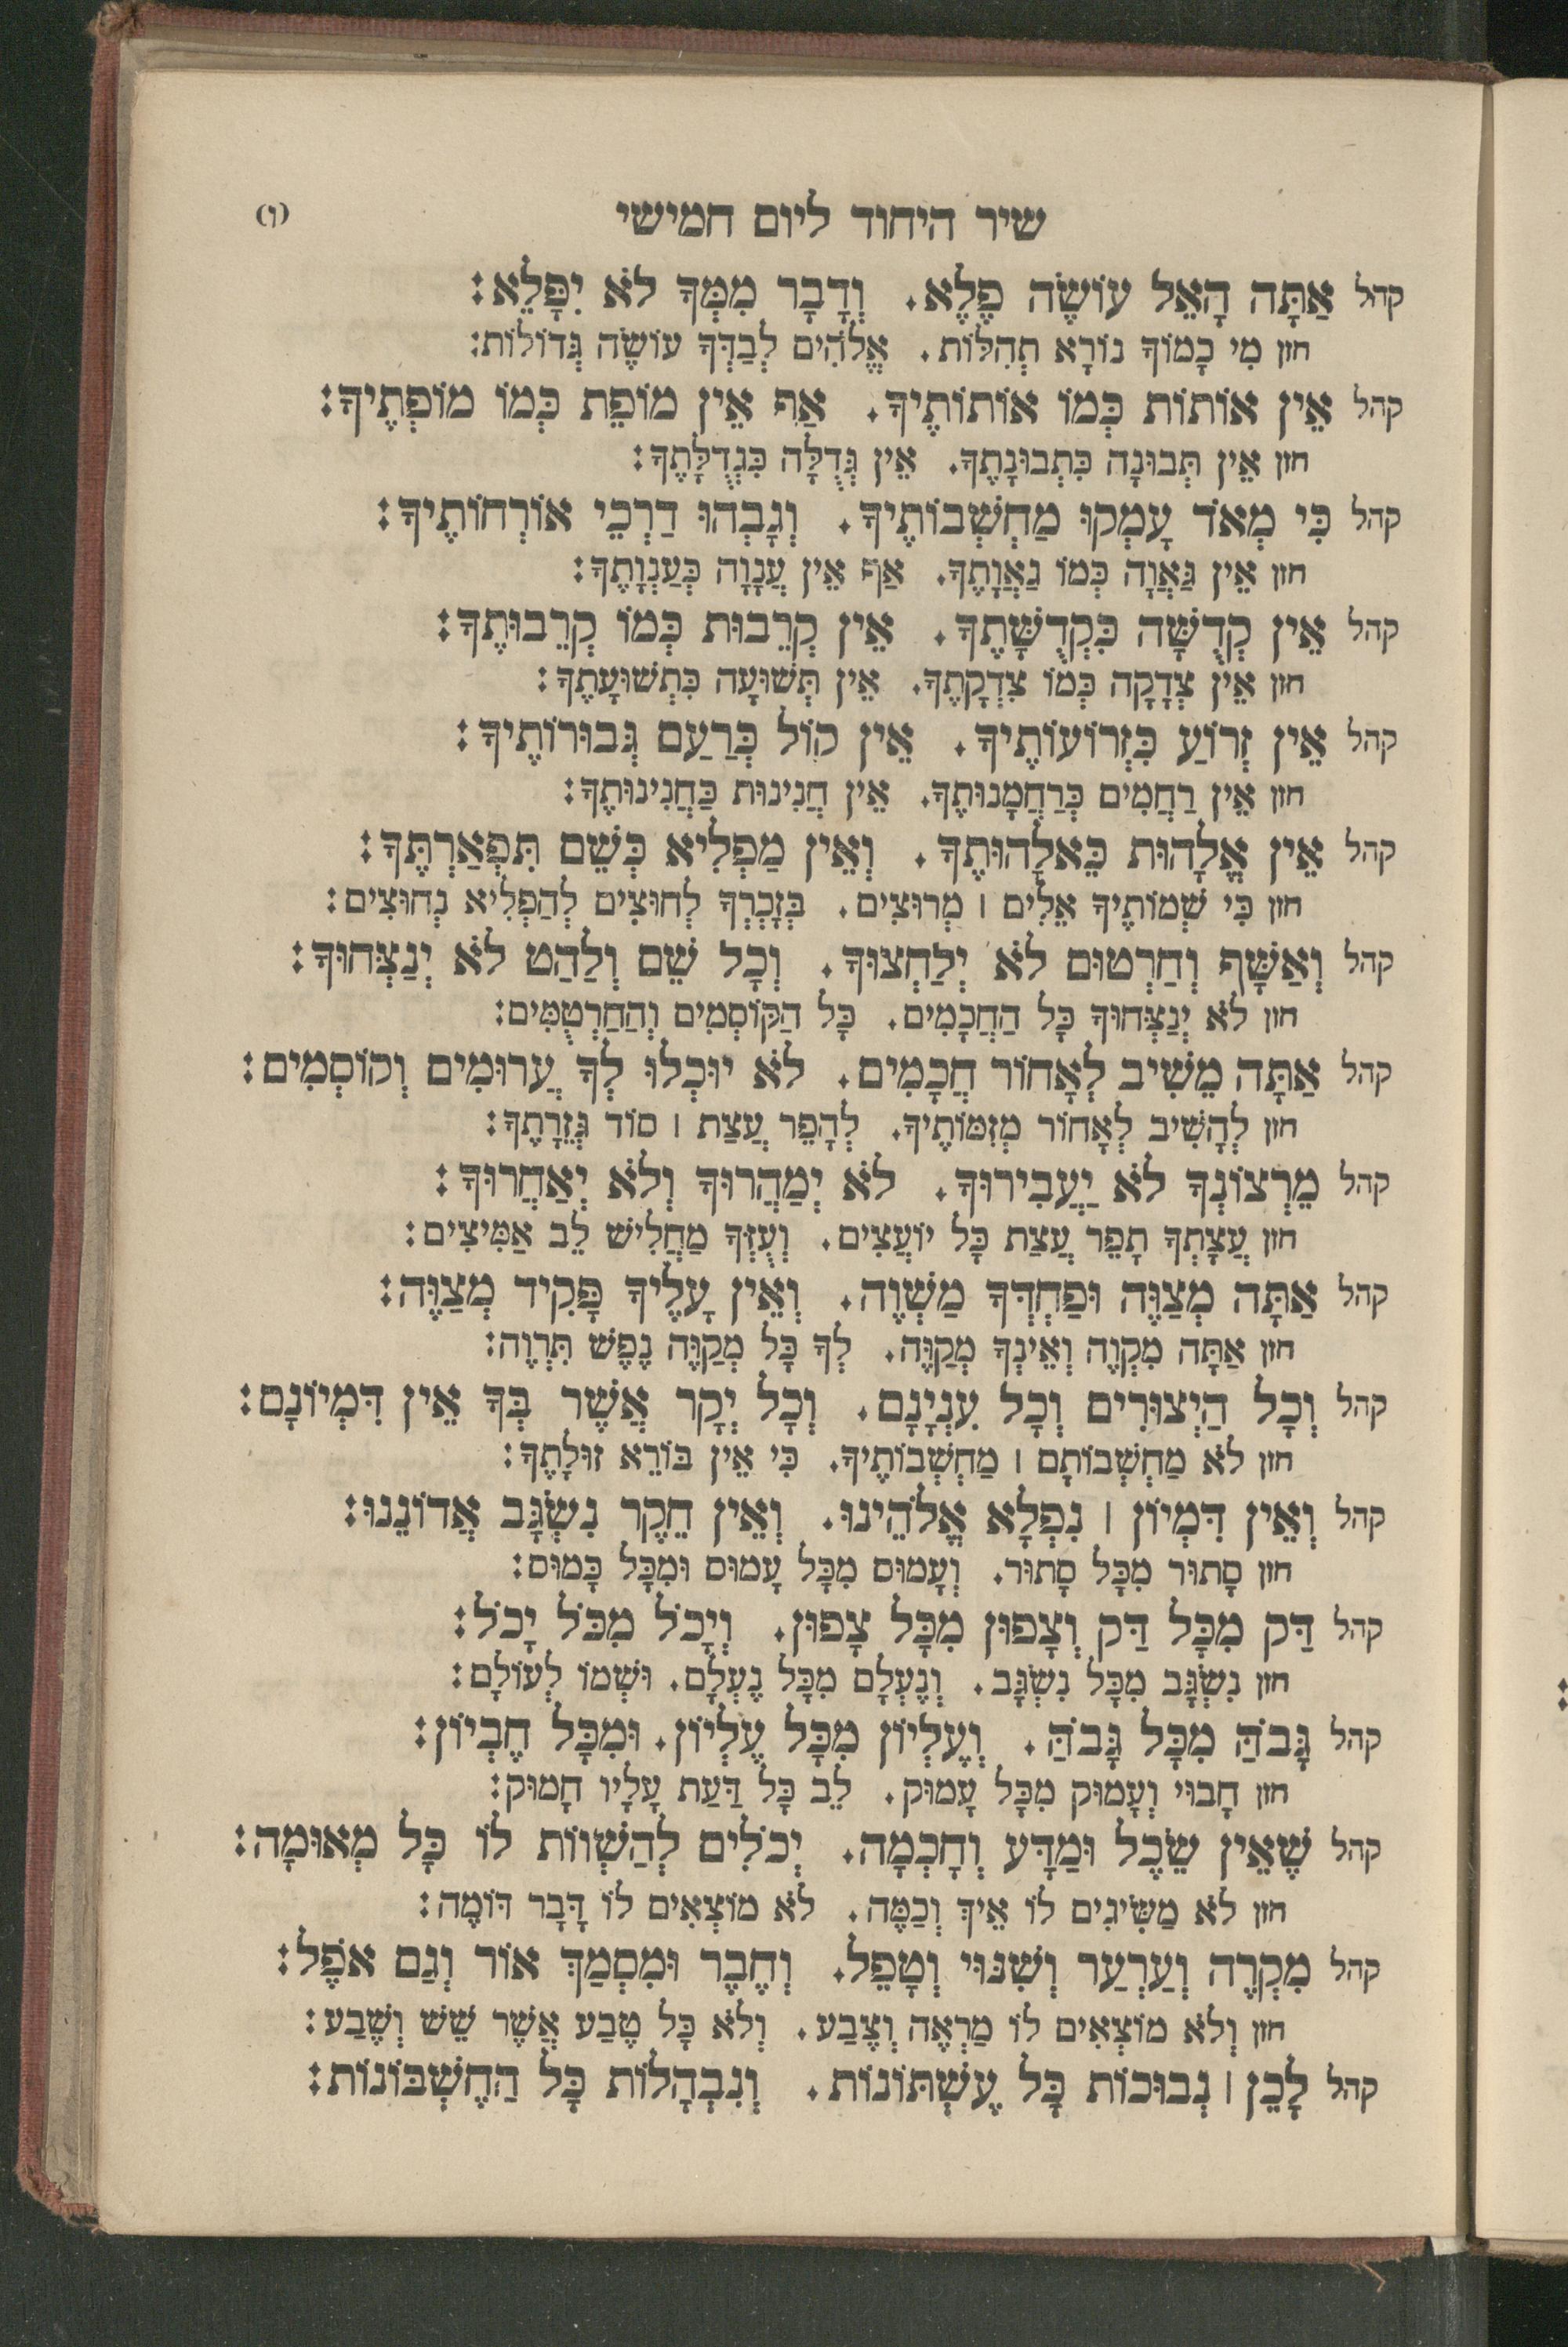 שיר היחוד ליום חמישי (ו)
קהל אַתָּה הָאֵל עוֹשֶׂה פֶלֶא. וְדָבָר מִמְּךָ לֹא יִפָּלֵא:
חזן מִי כָמוֹךָ נוֹרָא תְהִלּוֹת. אֱלֹהִים לְבַדְּךָ עוֹשֶׂה גְּדוֹלוֹת:
קהל אֵין אוֹתוֹת כְּמוֹ אוֹתוֹתֶיךָ. אַף אֵין מוֹפֵת כְּמוֹ מוֹפְתֶיךָ:
חזן אֵין תְּבוּנָה כִּתְבוּנָתֶךָ. אֵין גְּדֻלָּה כִּגְדֻלָּתֶךָ:
קהל כִּי מְאֹד עָמְקוּ מַחְשְׁבוֹתֶיךָ. וְגָבְהוּ דַרְכֵי אוֹרְחוֹתֶיךָ:
חזן אֵין גַּאֲוָה כְּמוֹ גַאֲוָתֶךָ. אַף אֵין עֲנָוָה כְּעַנְוָתֶךָ:
קהל אֵין קְדֻשָּׁה כִּקְדֻשָּׁתֶךָ. אֵין קְרֵבוּת כְּמוֹ קְרֵבוּתֶךָ:
חזן אֵין צְדָקָה כְּמוֹ צִדְקָתֶךָ. אֵין תְּשׁוּעָה כִּתְשׁוּעָתֶךָ:
קהל אֵין זְרוֹעַ כִּזְרוֹעוֹתֶיךָ. אֵין קוֹל כְּרַעַם גְּבוּרוֹתֶיךָ:
חזן אֵין רַחֲמִים כְּרַחֲמָנוּתֶךָ. אֵין חֲנִינוּת כַּחֲנִינוּתֶךָ:
קהל אֵין אֱלָהוּת כֵּאלָהוּתֶךָ. וְאֵין מַפְלִיא כְּשֵׁם תִּפְאַרְתֶּךָ:
חזן כִּי שְׁמוֹתֶיךָ אֵלִים ׀ מְרוּצִים. בְּזָכְרְךָ לְחוּצִים לְהַפְלִיא נְחוּצִים:
קהל וְאַשָּׁף וְחַרְטוֹם לֹא יְלַחְצוּךָ. וְכָל שֵׁם וְלַהַט לֹא יְנַצְּחוּךָ:
חזן לֹא יְנַצְּחוּךָ כָּל הַחֲכָמִים. כָּל הַקּוֹסְמִים וְהַחַרְטֻמִּים:
קהל אַתָּה מֵשִׁיב לְאָחוֹר חֲכָמִים. לֹא יוּכְלוּ לְךָ עֲרוּמִים וְקוֹסְמִים:
חזן לְהָשִׁיב לְאָחוֹר מְזִמּוֹתֶיךָ. לְהָפֵר עֲצַת ׀ סוֹד גְּזֵרָתֶךָ:
קהל מֵרְצוֹנְךָ לֹא יַעֲבִירוּךָ. לֹא יְמַהֲרוּךָ וְלֹא יְאַחֲרוּךָ:
חזן עֲצָתְךָ תָפֵר עֲצַת כָּל יוֹעֲצִים. וְעֻזְּךָ מַחֲלִישׁ לֵב אַמִּיצִים:
קהל אַתָּה מְצַוֶּה וּפַחְדְּךָ מַשְׁוֶה. וְאֵין עָלֶיךָ פָּקִיד מְצַוֶּה:
חזן אַתָּה מִקְוֶה וְאֵינְךָ מְקַוֶּה. לְךָ כָּל מְקַוֶּה נֶפֶשׁ תִּרְוֶה:
קהל וְכָל הַיְצוּרִים וְכָל עִנְיָנָם. וְכָל יְקָר אֲשֶׁר בְּךָ אֵין דִּמְיוֹנָם:
חזן לֹא מַחְשְׁבוֹתָם ׀ מַחְשְׁבוֹתֶיךָ. כִּי אֵין בּוֹרֵא זוּלָתֶךָ:
קהל וְאֵין דִּמְיוֹן ׀ נִפְלָא אֱלֹהֵינוּ. וְאֵין חֵקֶר נִשְׂגָּב אֲדוֹנֵנוּ:
חזן סָתוּר מִכָּל סָתוּר. וְעָמוּם מִכָּל עָמוּם וּמִכָּל כָּמוּס:
קהל דַּק מִכָּל דַּק וְצָפוּן מִכָּל צָפוּן. וְיָכֹל מִכֹּל יָכֹל:
חזן נִשְׂגָּב מִכָּל נִשְׂגָּב. וְנֶעְלָם מִכָּל נֶעְלָם. וּשְׁמוֹ לְעוֹלָם:
קהל גָּבֹהַּ מִכָּל גָּבֹהַּ. וְעֶלְיוֹן מִכָּל עֶלְיוֹן. וּמִכָּל חֶבְיוֹן:
חזן חָבוּי וְעָמוּק מִכָּל עָמוּק. לֵב כָּל דַּעַת עָלָיו חָמוּק:
קהל שֶׁאֵין שֵׂכֶל וּמַדָּע וְחָכְמָה. יְכֹלִים לְהַשְׁווֹת לוֹ כָּל מְאוּמָה:
חזן לֹא מַשִּׂיגִים לוֹ אֵיךְ וְכַמֶּה. לֹא מוֹצְאִים לוֹ דָּבָר דּוֹמֶה:
קהל מִקְרֶה וְעַרְעַר וְשִׁנּוּי וְטָפֵל. וְחֶבֶר וּמִסְמַךְ אוֹר וְגַם אֹפֶל:
חזן וְלֹא מוֹצְאִים לוֹ מַרְאֶה וְצֶבַע. וְלֹא כָּל טֶבַע אֲשֶׁר שֵׁשׁ וְשֶׁבַע:
קהל לָכֵן ׀ נְבוּכוֹת כָּל עֶשְׁתּוֹנוֹת. וְנִבְהָלוֹת כָּל הַחֶשְׁבּוֹנוֹת: